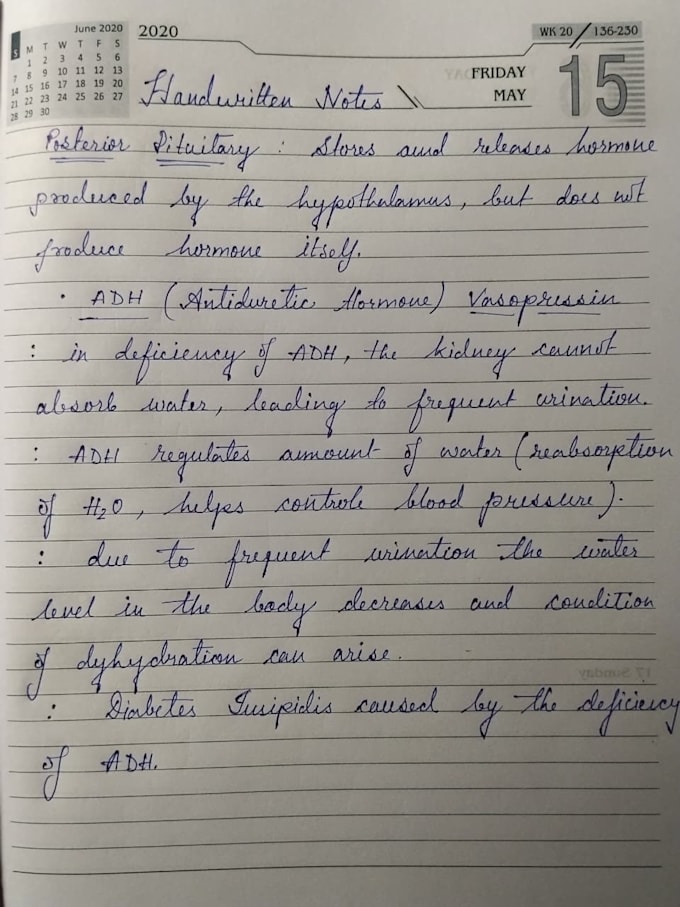 June 2020
S M T W T F S
1 2 3 4 5 6
7 8 9 10 11 12 13
14 15 16 17 18 19 20
21 22 23 24 25 26 27
28 29 30
2020
WK 20 / 136-230
FRIDAY
MAY
15
Handwritten Notes
Posterior Pituitary : Stores and releases hormone
produced by the hypothalamus, but does not
produce hormone itself.
· ADH (Antiduretic Hormone) Vasopressin
: in deficiency of ADH, the kidney cannot
absorb water, leading to frequent urination.
: ADH regulates amount of water (reabsorption
of H₂O, helps controle blood pressure).
: due to frequent urination the water
level in the body decreases and condition
of dyhydration can arise.
17 Sunday
: Diabetes Insipidis caused by the deficiency
of ADH.